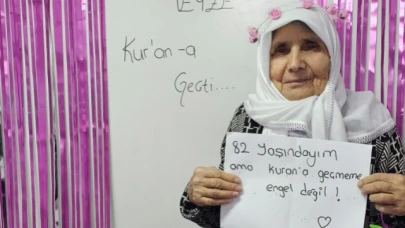 VEYZE
Kur'an -a
Geçti....
82 Yaşındayım
ama kuran'a geçmeme
engel değil !